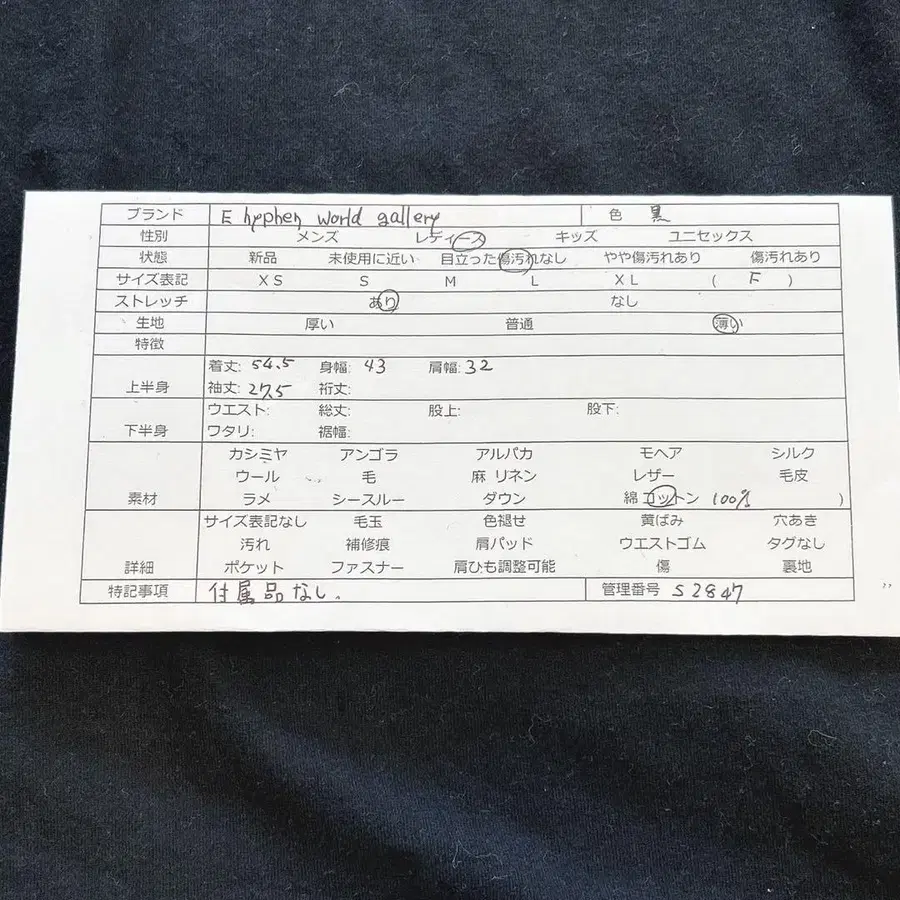 ブランド E hyphen world gallery 色 黒
性別 メンズ レディース キッズ ユニセックス
状態 新品 未使用に近い 目立った傷汚れなし やや傷汚れあり 傷汚れあり
サイズ表記 XS S M L XL ( F )
ストレッチ あり なし
生地 厚い 普通 薄い
特徴
着丈: 54.5 身幅: 43 肩幅: 32
上半身 袖丈: 27.5 裄丈:
ウエスト: 総丈: 股上: 股下:
下半身 ワタリ: 裾幅:
カシミヤ アンゴラ アルパカ モヘア シルク
ウール 毛 麻 リネン レザー 毛皮
素材 ラメ シースルー ダウン 綿 コットン 100% )
サイズ表記なし 毛玉 色褪せ 黄ばみ 穴あき
汚れ 補修痕 肩パッド ウエストゴム タグなし
詳細 ポケット ファスナー 肩ひも調整可能 傷 裏地
特記事項 付属品なし. 管理番号 S2847